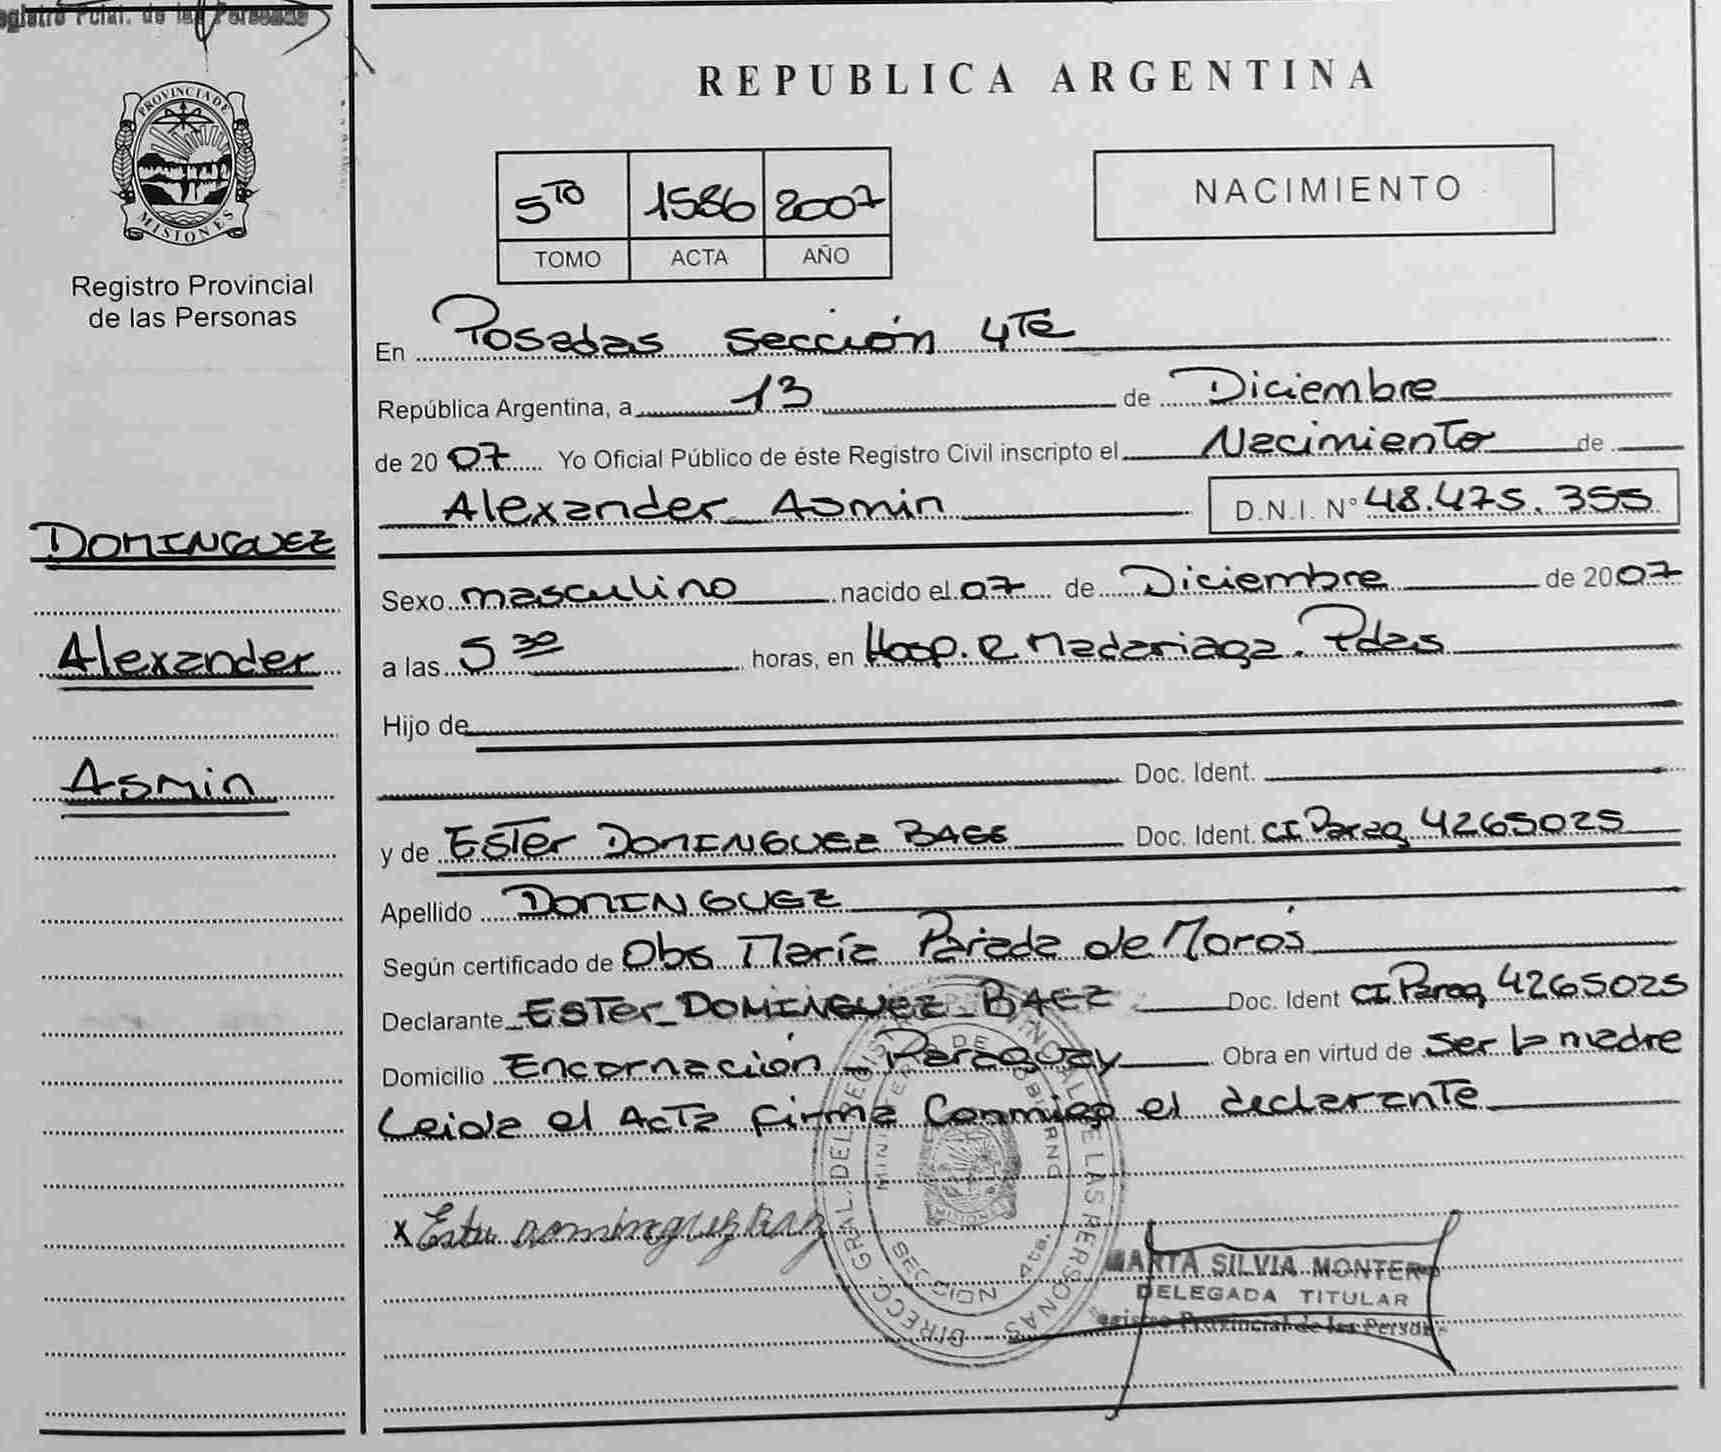 Registro Pcial. de las Personas
PROVINCIA DE
MISIONES
Registro Provincial
de las Personas
DOMINGUEZ
Alexander
Asmin
REPUBLICA ARGENTINA
5TO 1586 2007
TOMO ACTA AÑO
NACIMIENTO
En Posadas sección 4ta
República Argentina, a 13 de Diciembre
de 2007 Yo Oficial Público de éste Registro Civil inscripto el Nacimiento de
Alexander Asmin D.N.I. N° 48.475.355
Sexo masculino nacido el 07 de Diciembre de 2007
a las 5 30 horas, en Hosp. R Madariaga. Pdas
Hijo de
Doc. Ident.
y de Ester DOMINGUEZ BAEZ Doc. Ident. CI Parag 4265025
Apellido DOMINGUEZ
Según certificado de Obs María Parada de Moros
Declarante Ester DOMINGUEZ BAEZ Doc. Ident CI Parag 4265025
Domicilio Encarnación Paraguay Obra en virtud de ser la madre
Leida el Acta firma Conmigo el declarante
x Ester Dominguez Baez
DIRECC. GRAL. DEL REGISTRO PROVINCIAL DE LAS PERSONAS
MINISTERIO DE GOBIERNO
SECCION 4ta.
MISIONES
MARTA SILVIA MONTERO
DELEGADA TITULAR
Registro Provincial de las Personas